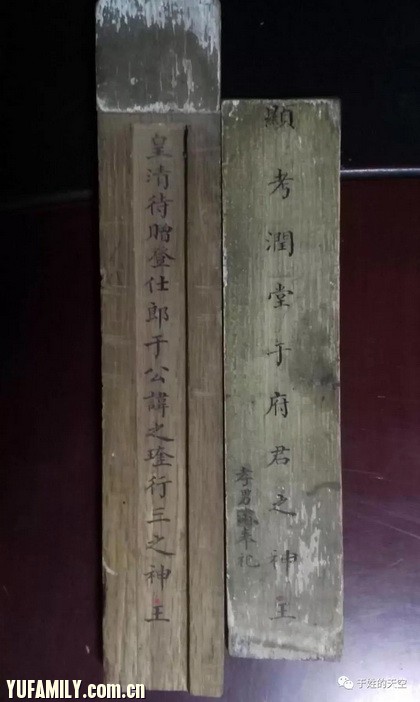 皇清待贈登仕郎于公諱之行三之神主
顯考潤堂于府君之神主
孝男奉祀
YUFAMILY.com.cn
于姓的天空